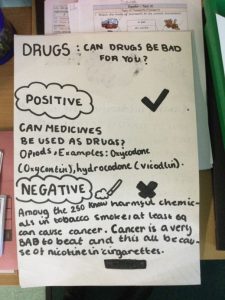 DRUGS : CAN DRUGS BE BAD
FOR YOU?
POSITIVE
CAN MEDICINES
BE USED AS DRUGS?
Opiods, Examples: Oxycodone
(Oxycontin), hydrocodone (vicodin).
NEGATIVE
Among the 250 know harmful chemic-
als in tobacco smoke, at least 69
can cause cancer. Cancer is a very
BAD to beat and this all be cau-
se of nicotine in cirgarettes.